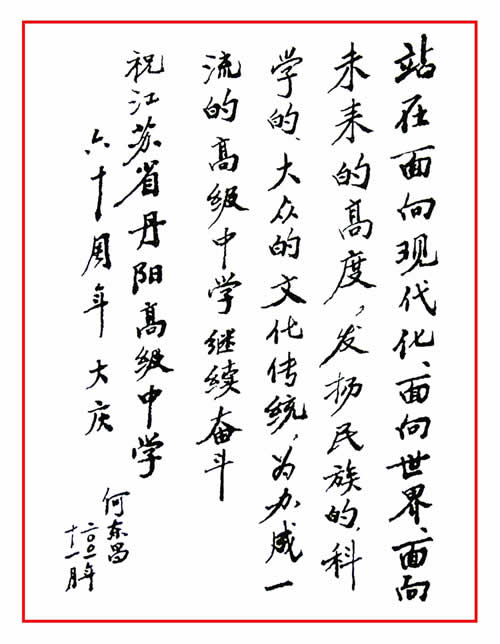 站在面向现代化、面向世界、面向
未来的高度，发扬民族的、科
学的、大众的文化传统，为办成一
流的高级中学继续奋斗
祝江苏省丹阳高级中学
六十周年大庆
何东昌
二〇〇一年
十一月